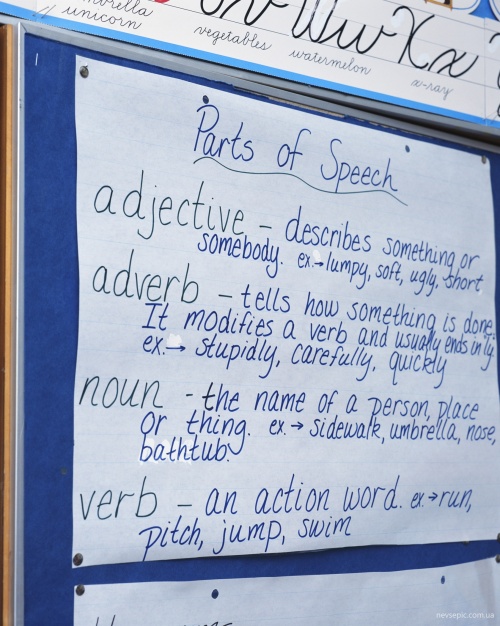 umbrella
unicorn
vegetables
Ww Xx
watermelon
x-ray
Parts of Speech
adjective – describes something or
somebody. ex.→ lumpy, soft, ugly, short
adverb – tells how something is done.
It modifies a verb and usually ends in ly.
ex.→ stupidly, carefully, quickly
noun - the name of a person, place
or thing. ex.→ sidewalk, umbrella, nose,
bathtub.
verb – an action word. ex→run,
pitch, jump, swim
nevsepic.com.ua